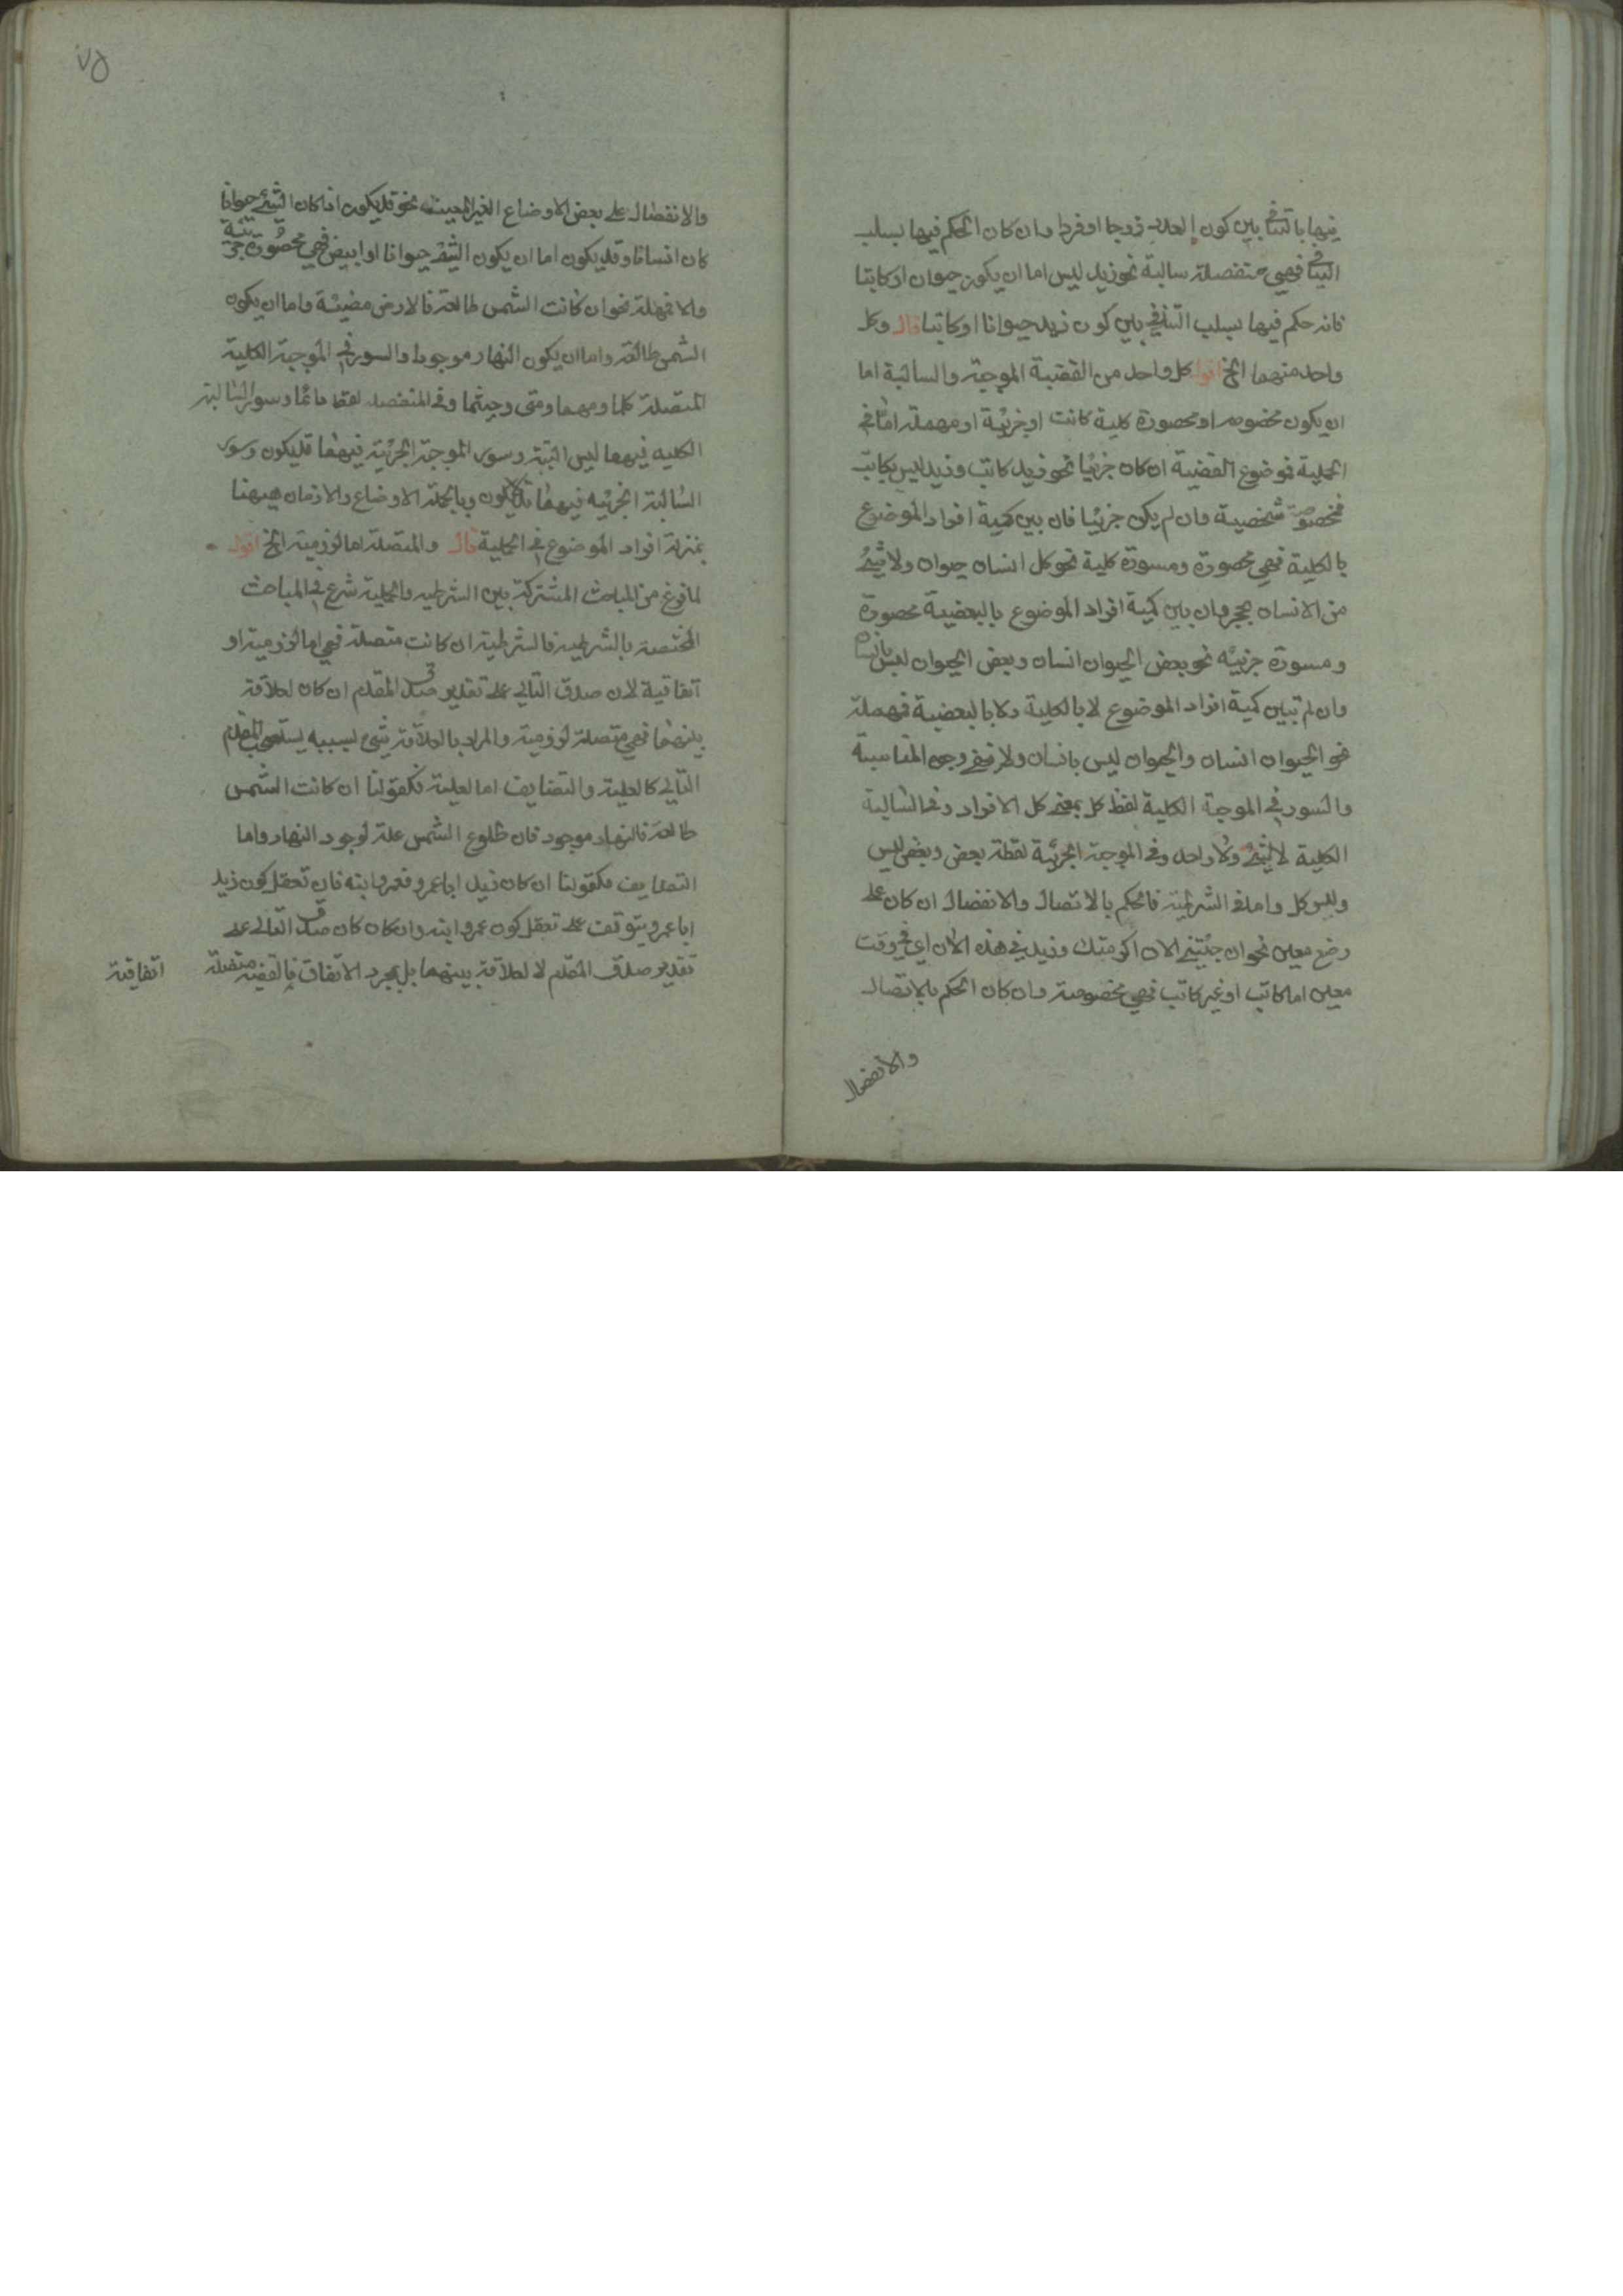 فيها بالتنافي بين كون العدد زوجا او فردا وان كان الحكم فيها بسلب
التنافي فهي منفصلة سالبة نحو زيد ليس اما ان يكون حيوان او كاتبا
فانه حكم فيها بسلب التنافي بين كون زيد حيوانا او كاتبا قال وكل
واحد منهما الخ اقول كل واحد من القضية الموجبة والسالبة اما
ان يكون مخصوصه او محصورة كلية كانت او جزئية او مهملة اما في
الحملية فموضوع القضية ان كان جزئيا نحو زيد كاتب وزيد ليس بكاتب
فمخصوصة شخصية وان لم يكن جزئيا فان بين كمية افراد الموضوع
بالكلية فهي محصورة ومسورة كلية نحو كل انسان حيوان ولا شيئ
من الانسان بحجر وان بين كمية افراد الموضوع بالبعضية محصورة
ومسورة جزئيه نحو بعض الحيوان انسان وبعض الحيوان ليس بانسان
وان لم تبين كمية افراد الموضوع لا بالكلية ولا بالبعضية فمهملة
نحو الحيوان انسان والحيوان ليس بانسان ولا يخفى وجه المناسبة
والسور في الموجبة الكلية لفظ كل بمعنى كل الافراد وفي السالبة
الكلية لا شيئ ولا واحد وفي الموجبة الجزئية لفظة بعض وبعض ليس
وليس كل واما في الشرطية فالحكم بالاتصال والانفصال ان كان على
وضع معين نحو ان جئتني الان اكرمتك وزيد في هذه الآن اي في وقت
معين اما كاتب او غير كاتب فهي مخصوصة وان كان الحكم بالاتصال
والانفصال
والانفصال على بعض الاوضاع الغير المعينة نحو قد يكون اذا كان الشيئ حيوانا
كان انسانا وقد يكون اما ان يكون الشيئ حيوانا او ابيض فهي محصورة جزئية
والا فمهملة نحو ان كانت الشمس طالعة فالارض مضيئة واما ان يكون
الشمس طالعة واما ان يكون النهار موجودا والسور في الموجبة الكلية
المتصلة كلما ومهما ومتى وحيثما وفي المنفصله لفظ دائما وسور السالبة
الكليه فيهما ليس البتة وسور الموجبة الجزئية فيهما قد يكون وسور
السالبة الجزئيه فيهما قد لا يكون وبالجملة الاوضاع والازمان ههنا
بمنزلة افراد الموضوع في الحملية قال والمتصلة اما لزومية الخ اقول
لما فرغ من المباحث المشتركة بين الشرطيه والحملية شرع في المباحث
المختصة بالشرطية فالشرطية ان كانت متصلة فهي اما لزومية او
اتفاقية لان صدق التالي على تقدير صدق المقدم ان كان لعلاقة
بينهما فهي متصلة لزومية والمراد بالعلاقة شيئ بسببه يستصحب المقدم
التالي كالعلية والتضايف اما العلية فكقولنا ان كانت الشمس
طالعة فالنهار موجود فان طلوع الشمس علة لوجود النهار واما
التضايف فكقولنا ان كان زيد ابا عمرو فعمرو ابنه فان تعقل كون زيد
ابا عمرو يتوقف على تعقل كون عمرو ابنه وان كان كان صدق التالي على
تقدير صدق المقدم لا لعلاقة بينهما بل بمجرد الاتفاق فالقضية متصلة
اتفاقية